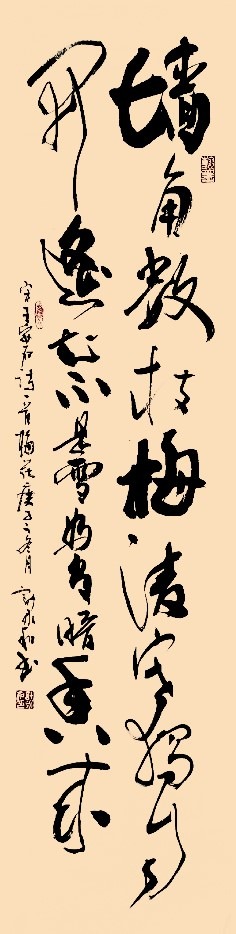 墙角数枝梅凌寒独自
开遥知不是雪为有暗香来
宋王安石诗一首梅花庚子之冬月书